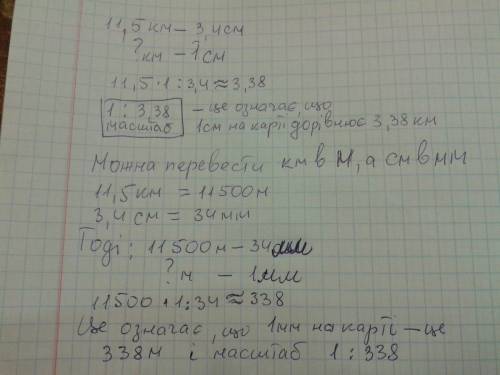 11,5 км – 3,4 см
? км – 1 см
11,5 · 1 : 3,4 ≈ 3,38
1 : 3,38 – це означає, що
масштаб 1 см на карті дорівнює 3,38 км
Можна перевести км в м, а см в мм
11,5 км = 11500 м
3,4 см = 34 мм
Тоді: 11500 м – 34 мм
? м – 1 мм
11500 · 1 : 34 ≈ 338
Це означає, що 1 мм на карті – це
338 м і масштаб 1 : 338